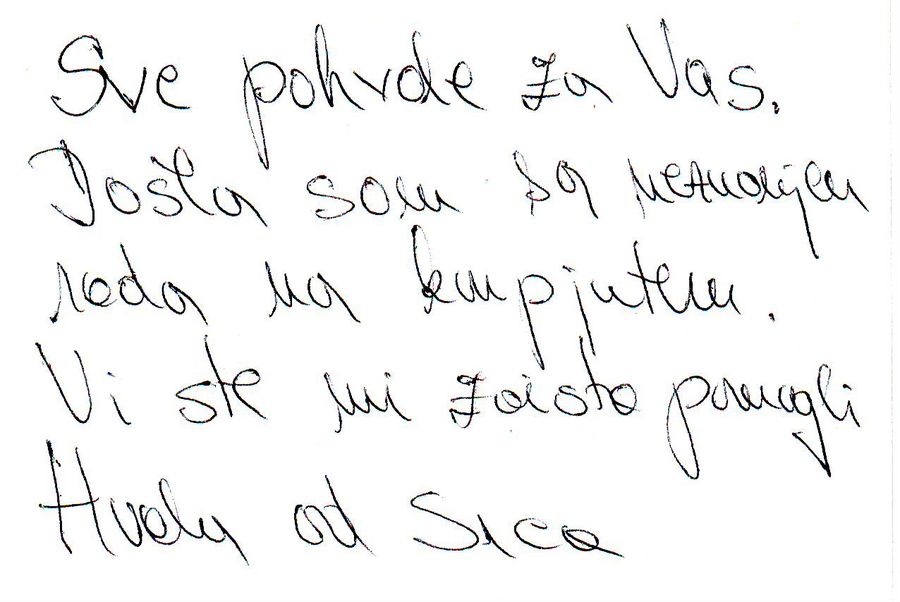 Sve pohvale za Vas.
Došla sam sa neznanjem
rada na kompjuteru.
Vi ste mi zaista pomogli
Hvala od Srca